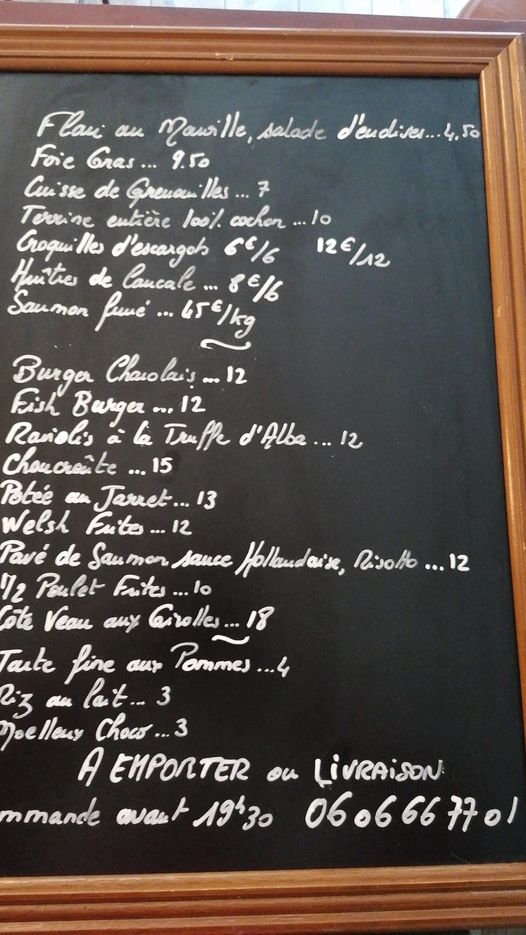 Flan au Maroille, salade d'endives...4,50
Foie Gras... 9.50
Cuisse de Grenouilles ... 7
Terrine entière 100% cochon ...10
Croquilles d'escargots 6€/6 12€/12
Huîtres de Cancale ... 8€/6
Saumon fumé ... 45€/kg
Burger Charolais ... 12
Fish Burger ... 12
Raviolis à la Truffe d'Alba ... 12
Choucroûte ... 15
Potée au Jarret... 13
Welsh Frites ... 12
Pavé de Saumon, sauce Hollandaise, Risotto ... 12
1/2 Poulet Frites ... 10
Côte Veau aux Girolles ... 18
Tarte fine aux Pommes ...4
Riz au lait ... 3
Moelleux Choco ... 3
A EMPORTER ou LIVRAISON
mmande avant 19h30 06 06 66 77 01